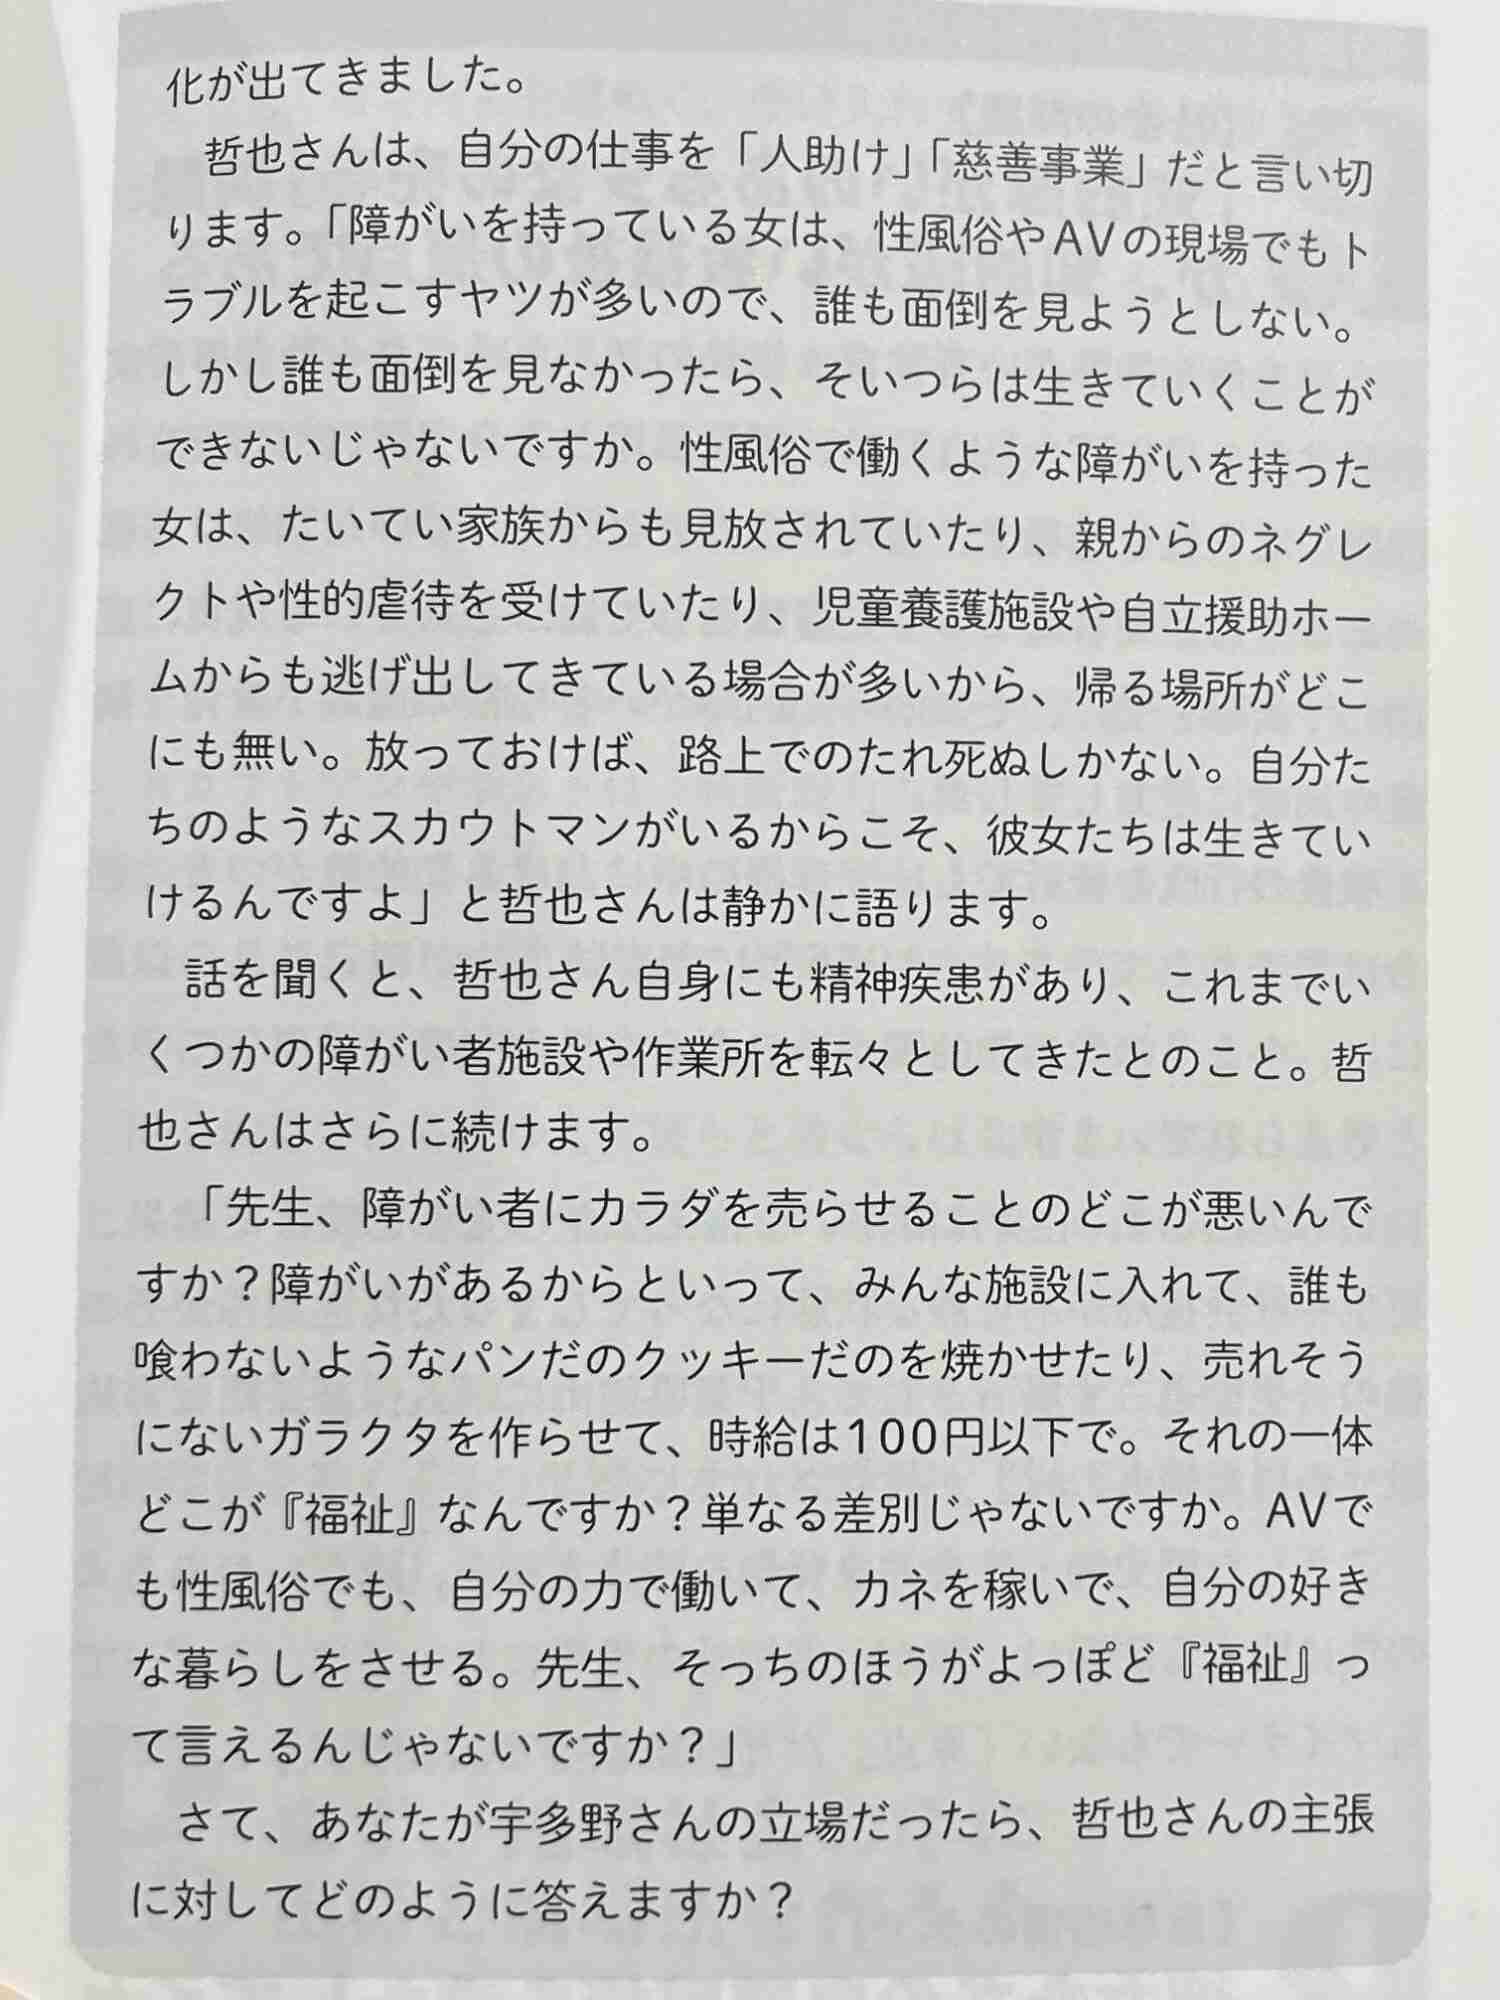 化が出てきました。
　哲也さんは、自分の仕事を「人助け」「慈善事業」だと言い切
ります。「障がいを持っている女は、性風俗やAVの現場でもト
ラブルを起こすヤツが多いので、誰も面倒を見ようとしない。
しかし誰も面倒を見なかったら、そいつらは生きていくことが
できないじゃないですか。性風俗で働くような障がいを持った
女は、たいてい家族からも見放されていたり、親からのネグレ
クトや性的虐待を受けていたり、児童養護施設や自立援助ホー
ムからも逃げ出してきている場合が多いから、帰る場所がどこ
にも無い。放っておけば、路上でのたれ死ぬしかない。自分た
ちのようなスカウトマンがいるからこそ、彼女たちは生きてい
けるんですよ」と哲也さんは静かに語ります。
　話を聞くと、哲也さん自身にも精神疾患があり、これまでい
くつかの障がい者施設や作業所を転々としてきたとのこと。哲
也さんはさらに続けます。
　「先生、障がい者にカラダを売らせることのどこが悪いんで
すか？障がいがあるからといって、みんな施設に入れて、誰も
喰わないようなパンだのクッキーだのを焼かせたり、売れそう
にないガラクタを作らせて、時給は100円以下で。それの一体
どこが『福祉』なんですか？単なる差別じゃないですか。AVで
も性風俗でも、自分の力で働いて、カネを稼いで、自分の好き
な暮らしをさせる。先生、そっちのほうがよっぽど『福祉』っ
て言えるんじゃないですか？」
　さて、あなたが宇多野さんの立場だったら、哲也さんの主張
に対してどのように答えますか？